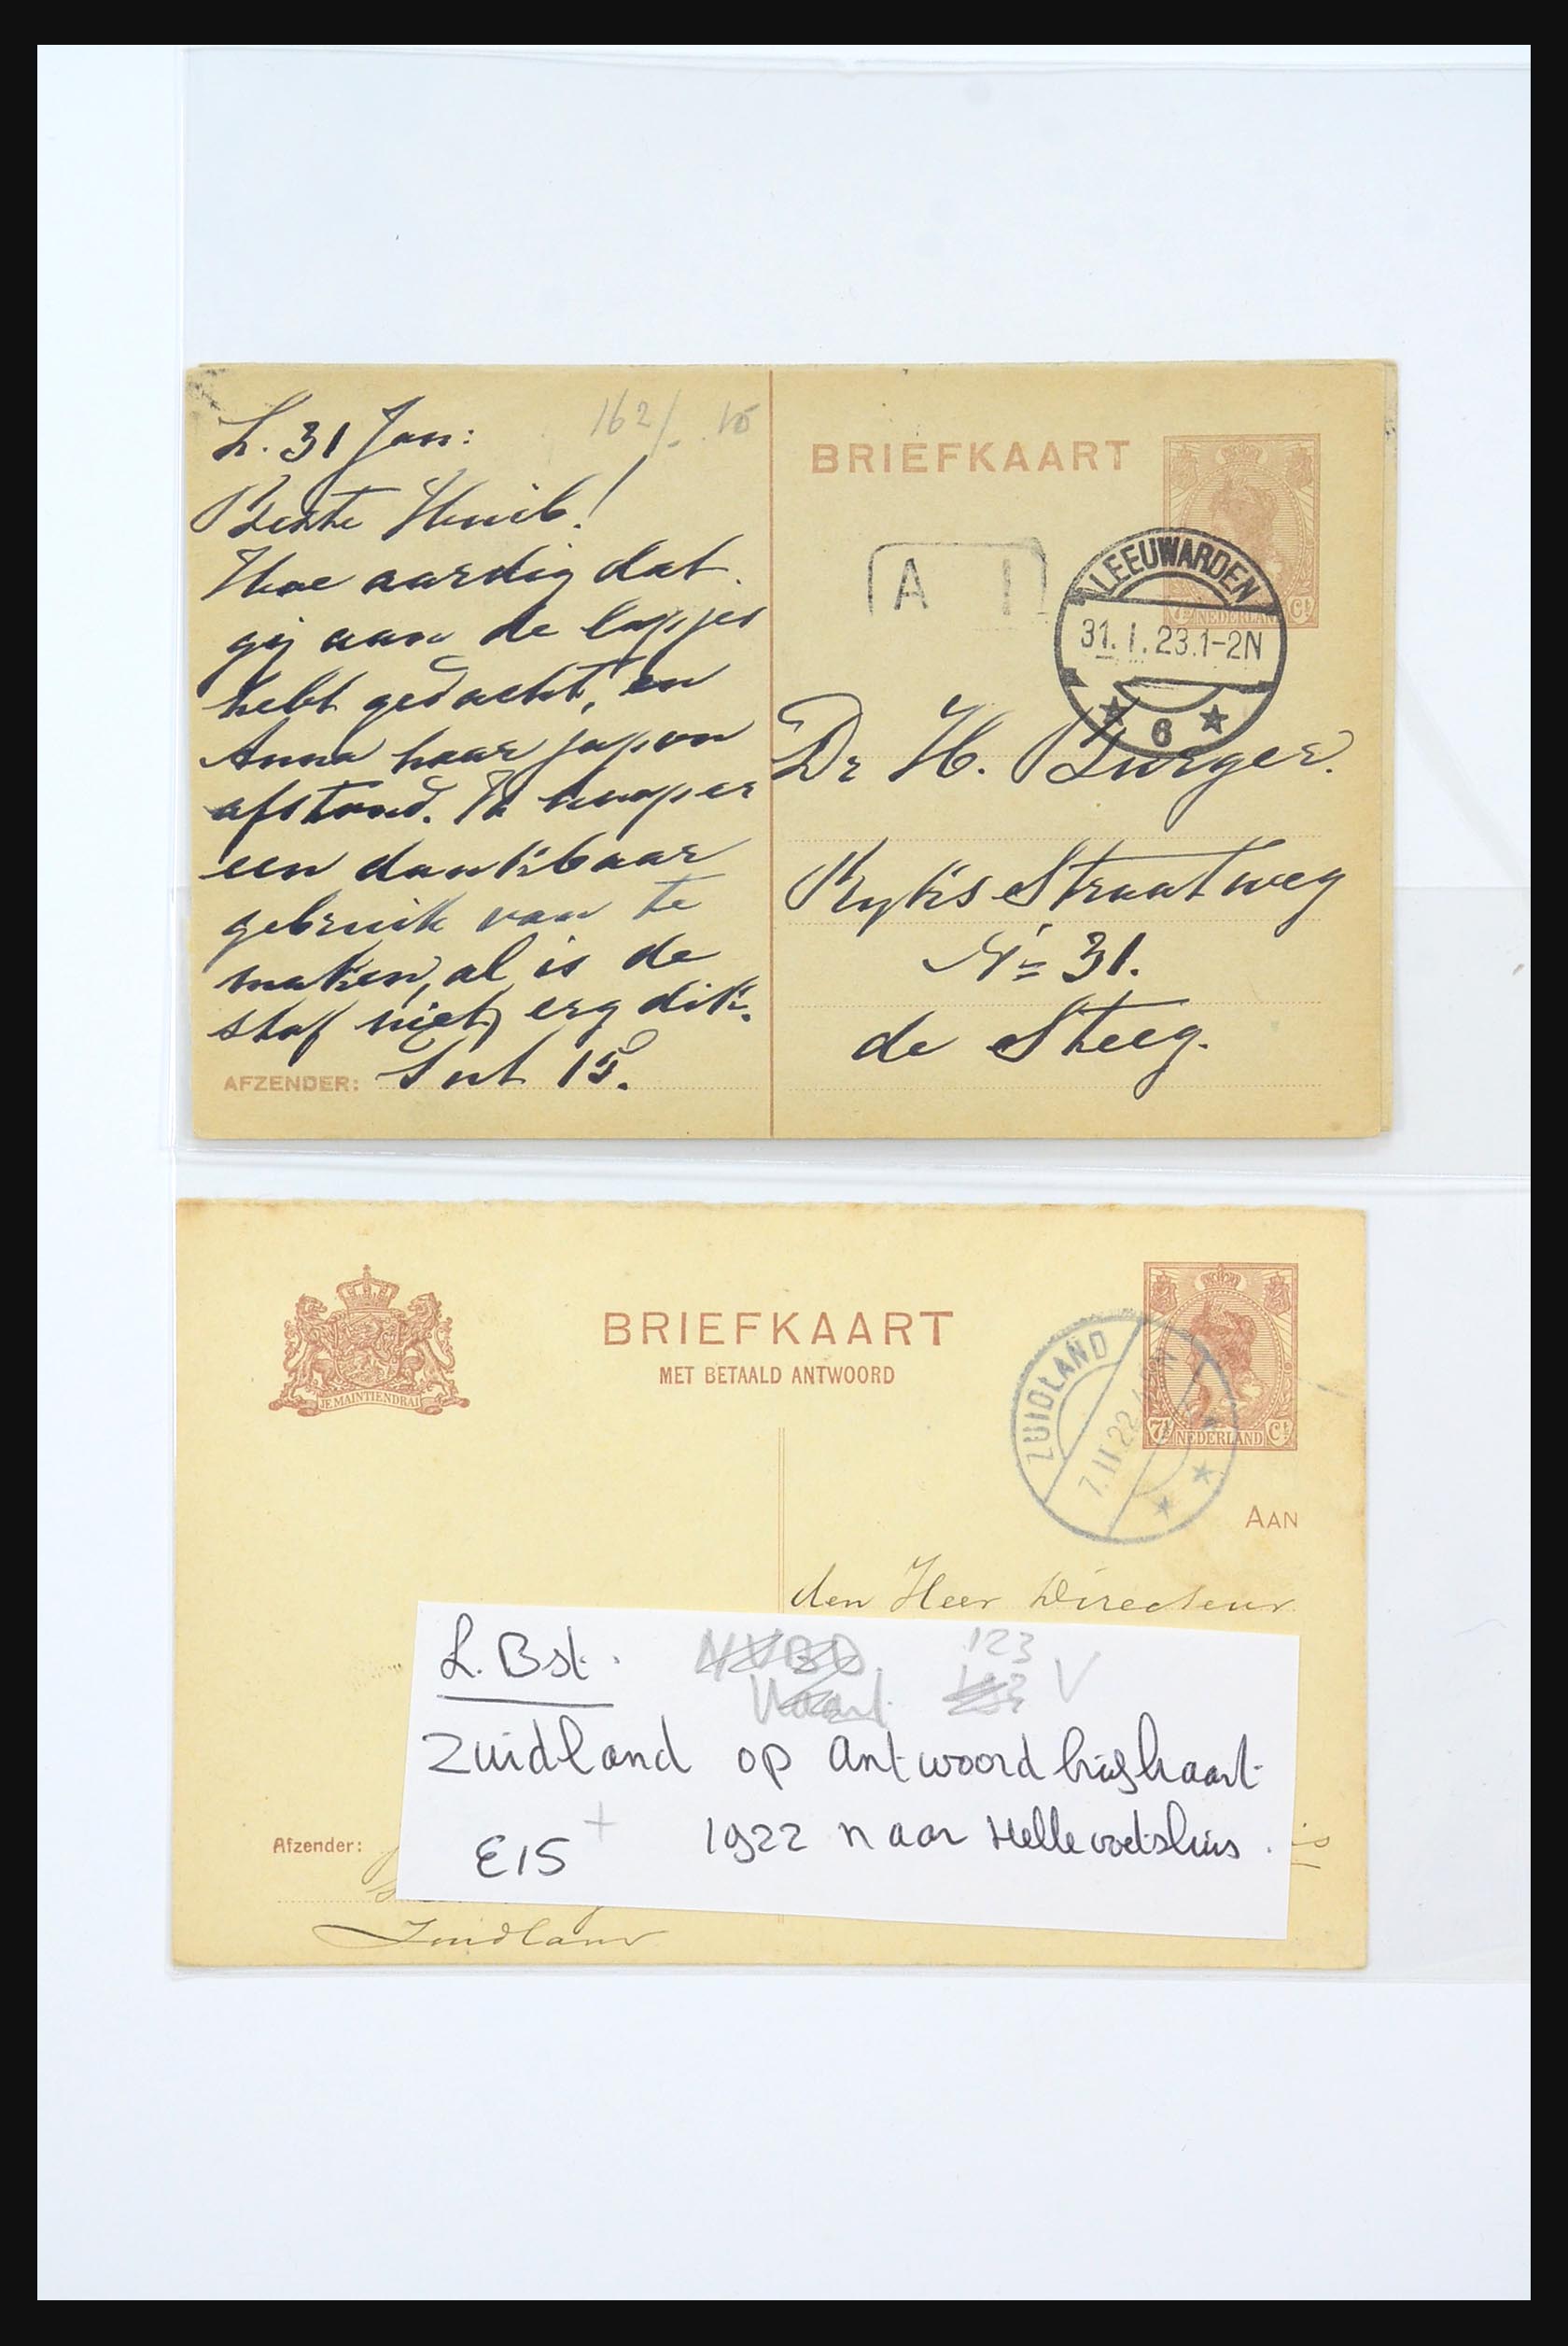 L. 31 Jan:
162/- 15
Beste Huib!
Hoe aardig dat
gij aan de lapjes
hebt gedacht, en
Anna haar japon
afstond. Ik hoop er
een dankbaar
gebruik van te
maken, al is de
stof niet erg dik.
AFZENDER: 15.
BRIEFKAART
NEDERLAND Ct
A I
LEEUWARDEN
31. I. 23.1-2N
6
Dr H. Burger.
Ryks Straatweg
No 31.
de Steeg.
JE MAINTIENDRAI
BRIEFKAART
MET BETAALD ANTWOORD
7½ NEDERLAND Ct
ZUIDLAND
7.II.22
AAN
den Heer Directeur
L. Bst. 123
V
Zuidland op antwoord briefkaart
1922 naar Hellevoetsluis.
E15 +
is
Afzender:
Zuidland